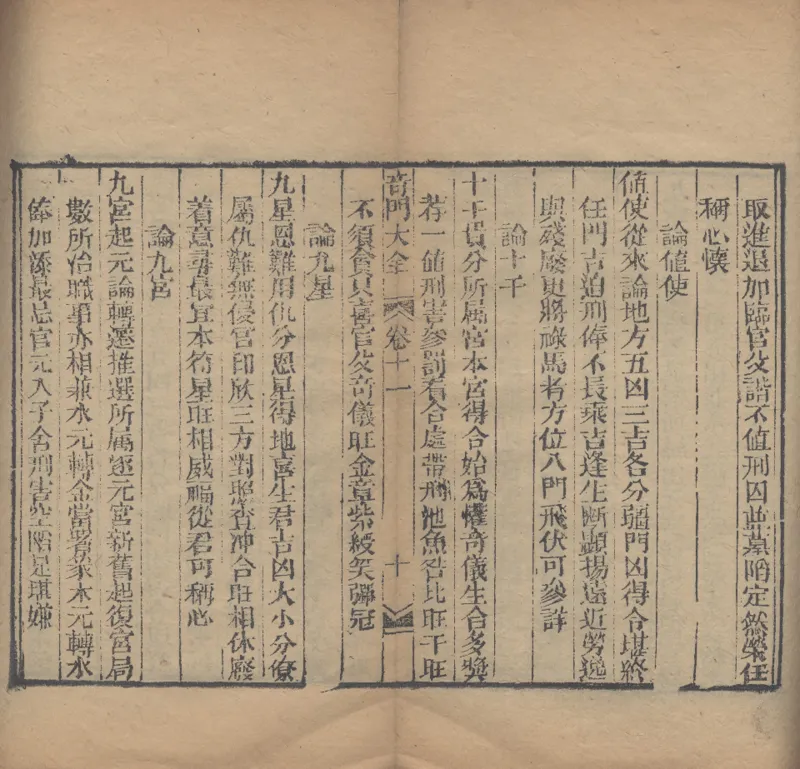 取進退加臨官父諧不值刑囚並墓陷定然榮任
稱心懷
論值使
值使從來論地方五凶三吉各分疆門凶得令堪終
任門吉迫刑俸不長乘吉逢生斷顯揚遠近勞逸
與殘廢更將祿馬考方位八門飛伏可參詳
論十干
十干貴分所属宮本宮得合始為懽奇儀生合多獎
荐一値刑害參罰看合處帶刑池魚咎比旺干旺
奇門大全 卷十一 十
不須貪只喜官父奇儀旺金章紫綬笑彈冠
論九星
九星恩難用仇分恩星得地喜生君吉凶大小分僚
屬仇難無侵宮印欣三方對照查冲合旺相休廢
着意尋最宜本符星旺相威福從君可稱心
論九宮
九宮起元論轉還推選所属逐元宮新舊起復宮局
數所治職事亦相兼水元轉金當署象木元轉水
俸加添最忌官元入子舍刑害空陷足堪嫌